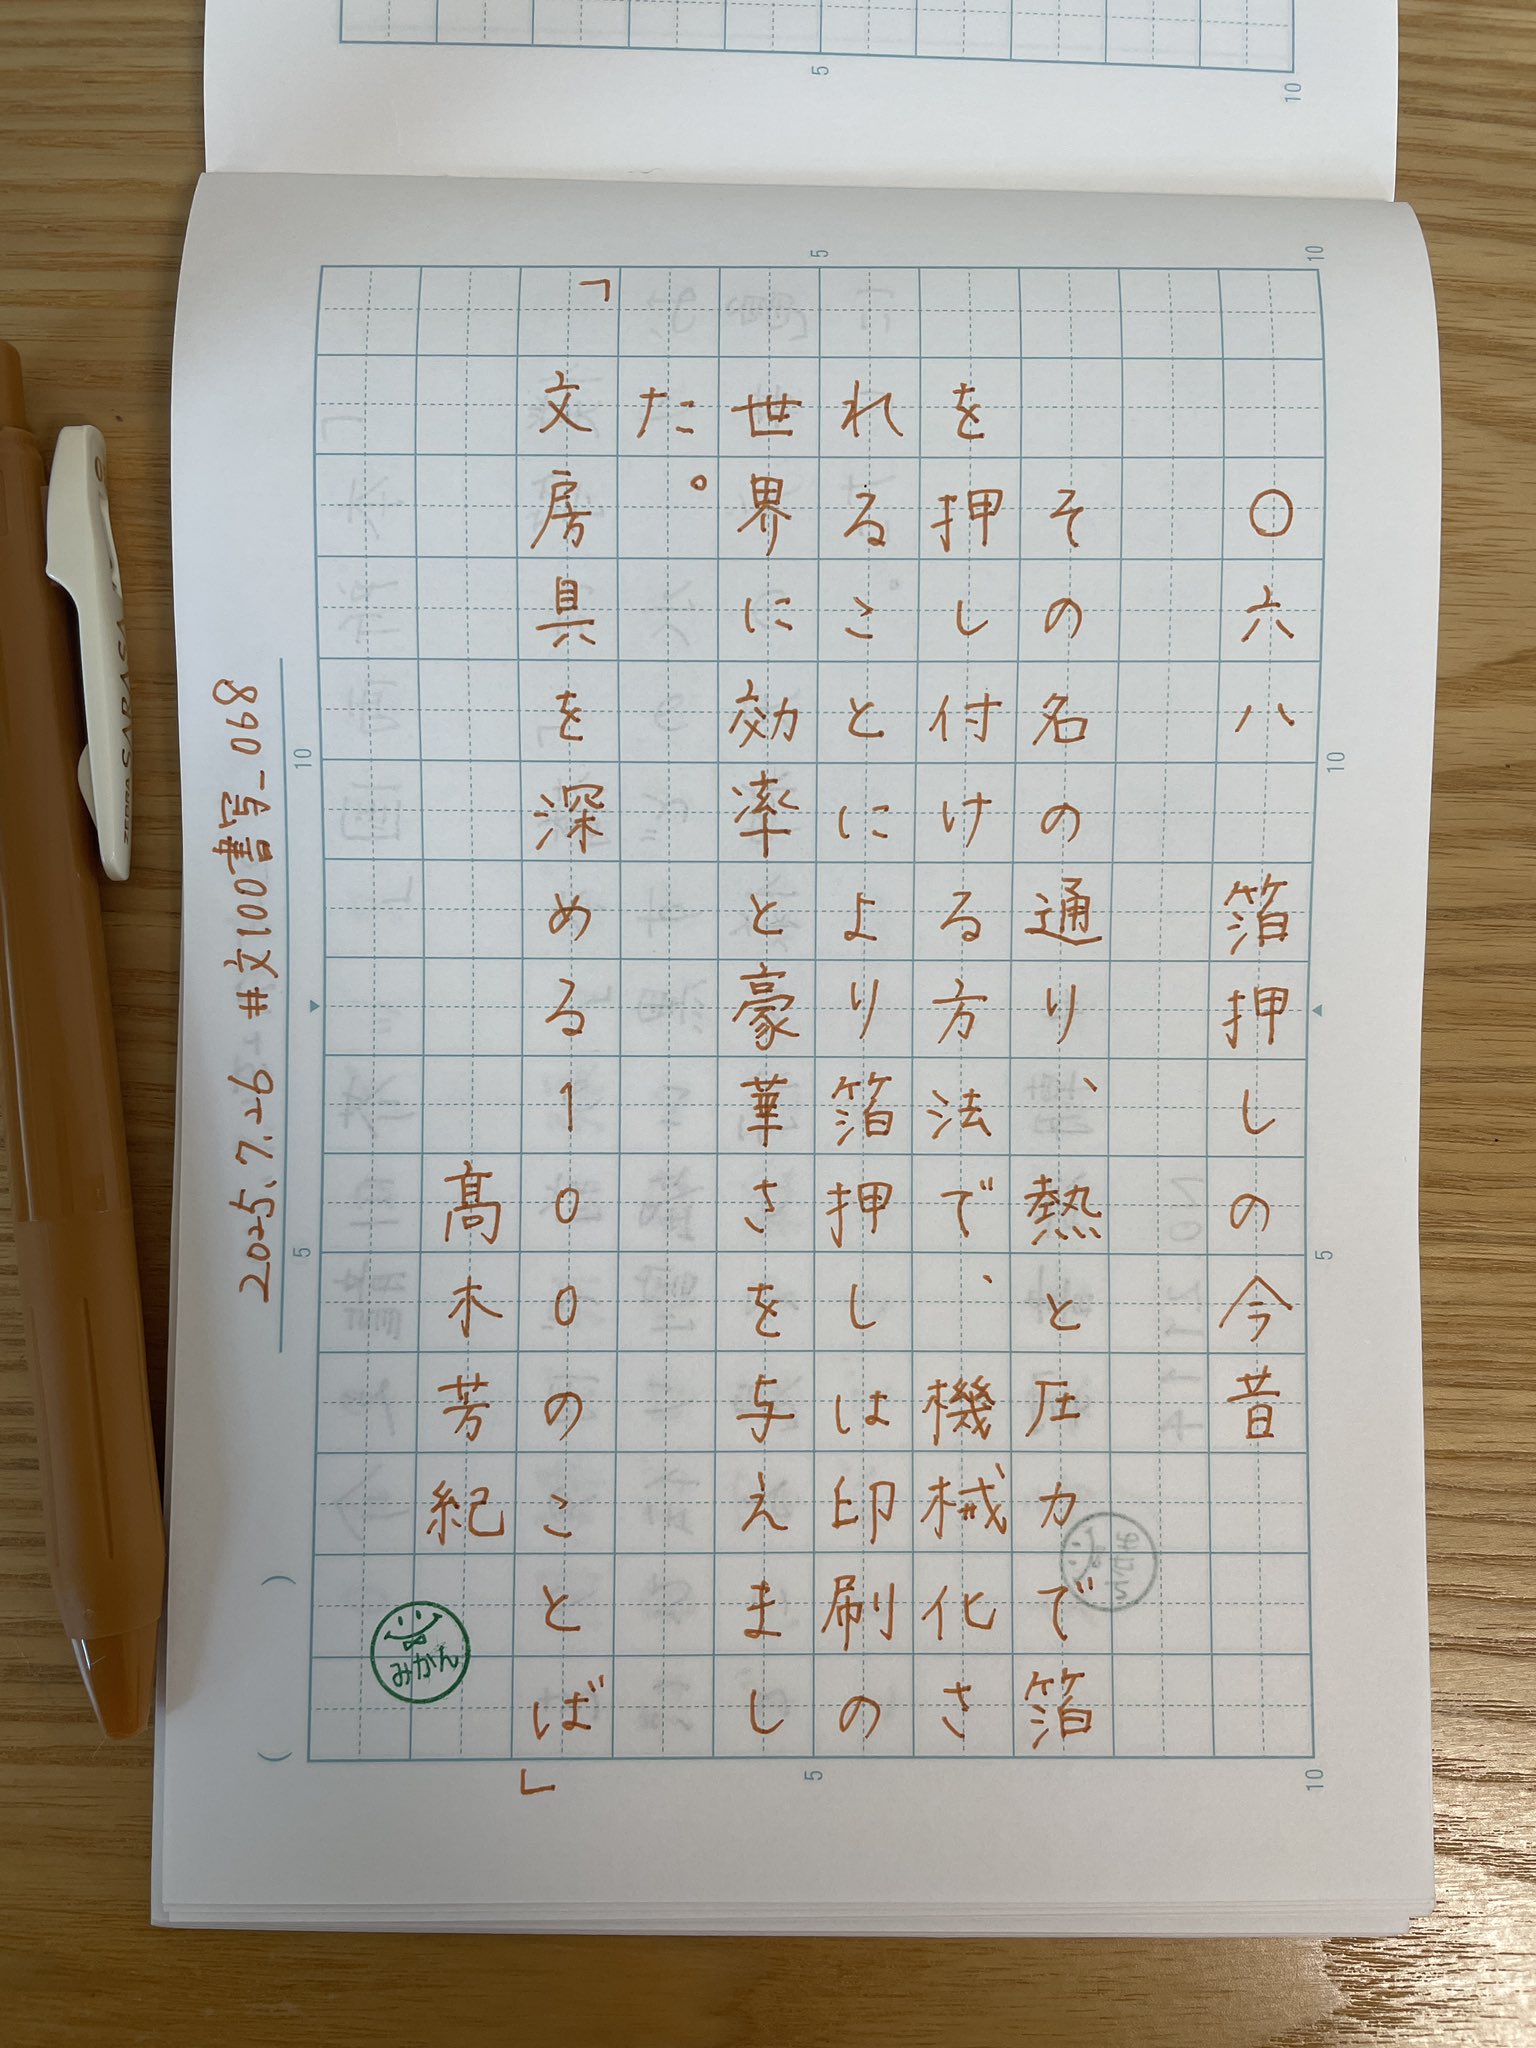 〇六八　箔押しの今昔
その名の通り、熱と圧力で箔
を押し付ける方法で、機械化さ
れることにより箔押しは印刷の
世界に効率と豪華さを与えまし
た。
「文房具を深める100のことば」
髙木芳紀
みかん
2025.7.26 #文100書写_068
ZEBRA SARASA
5
10
5
10
10
5
10
5
5
10